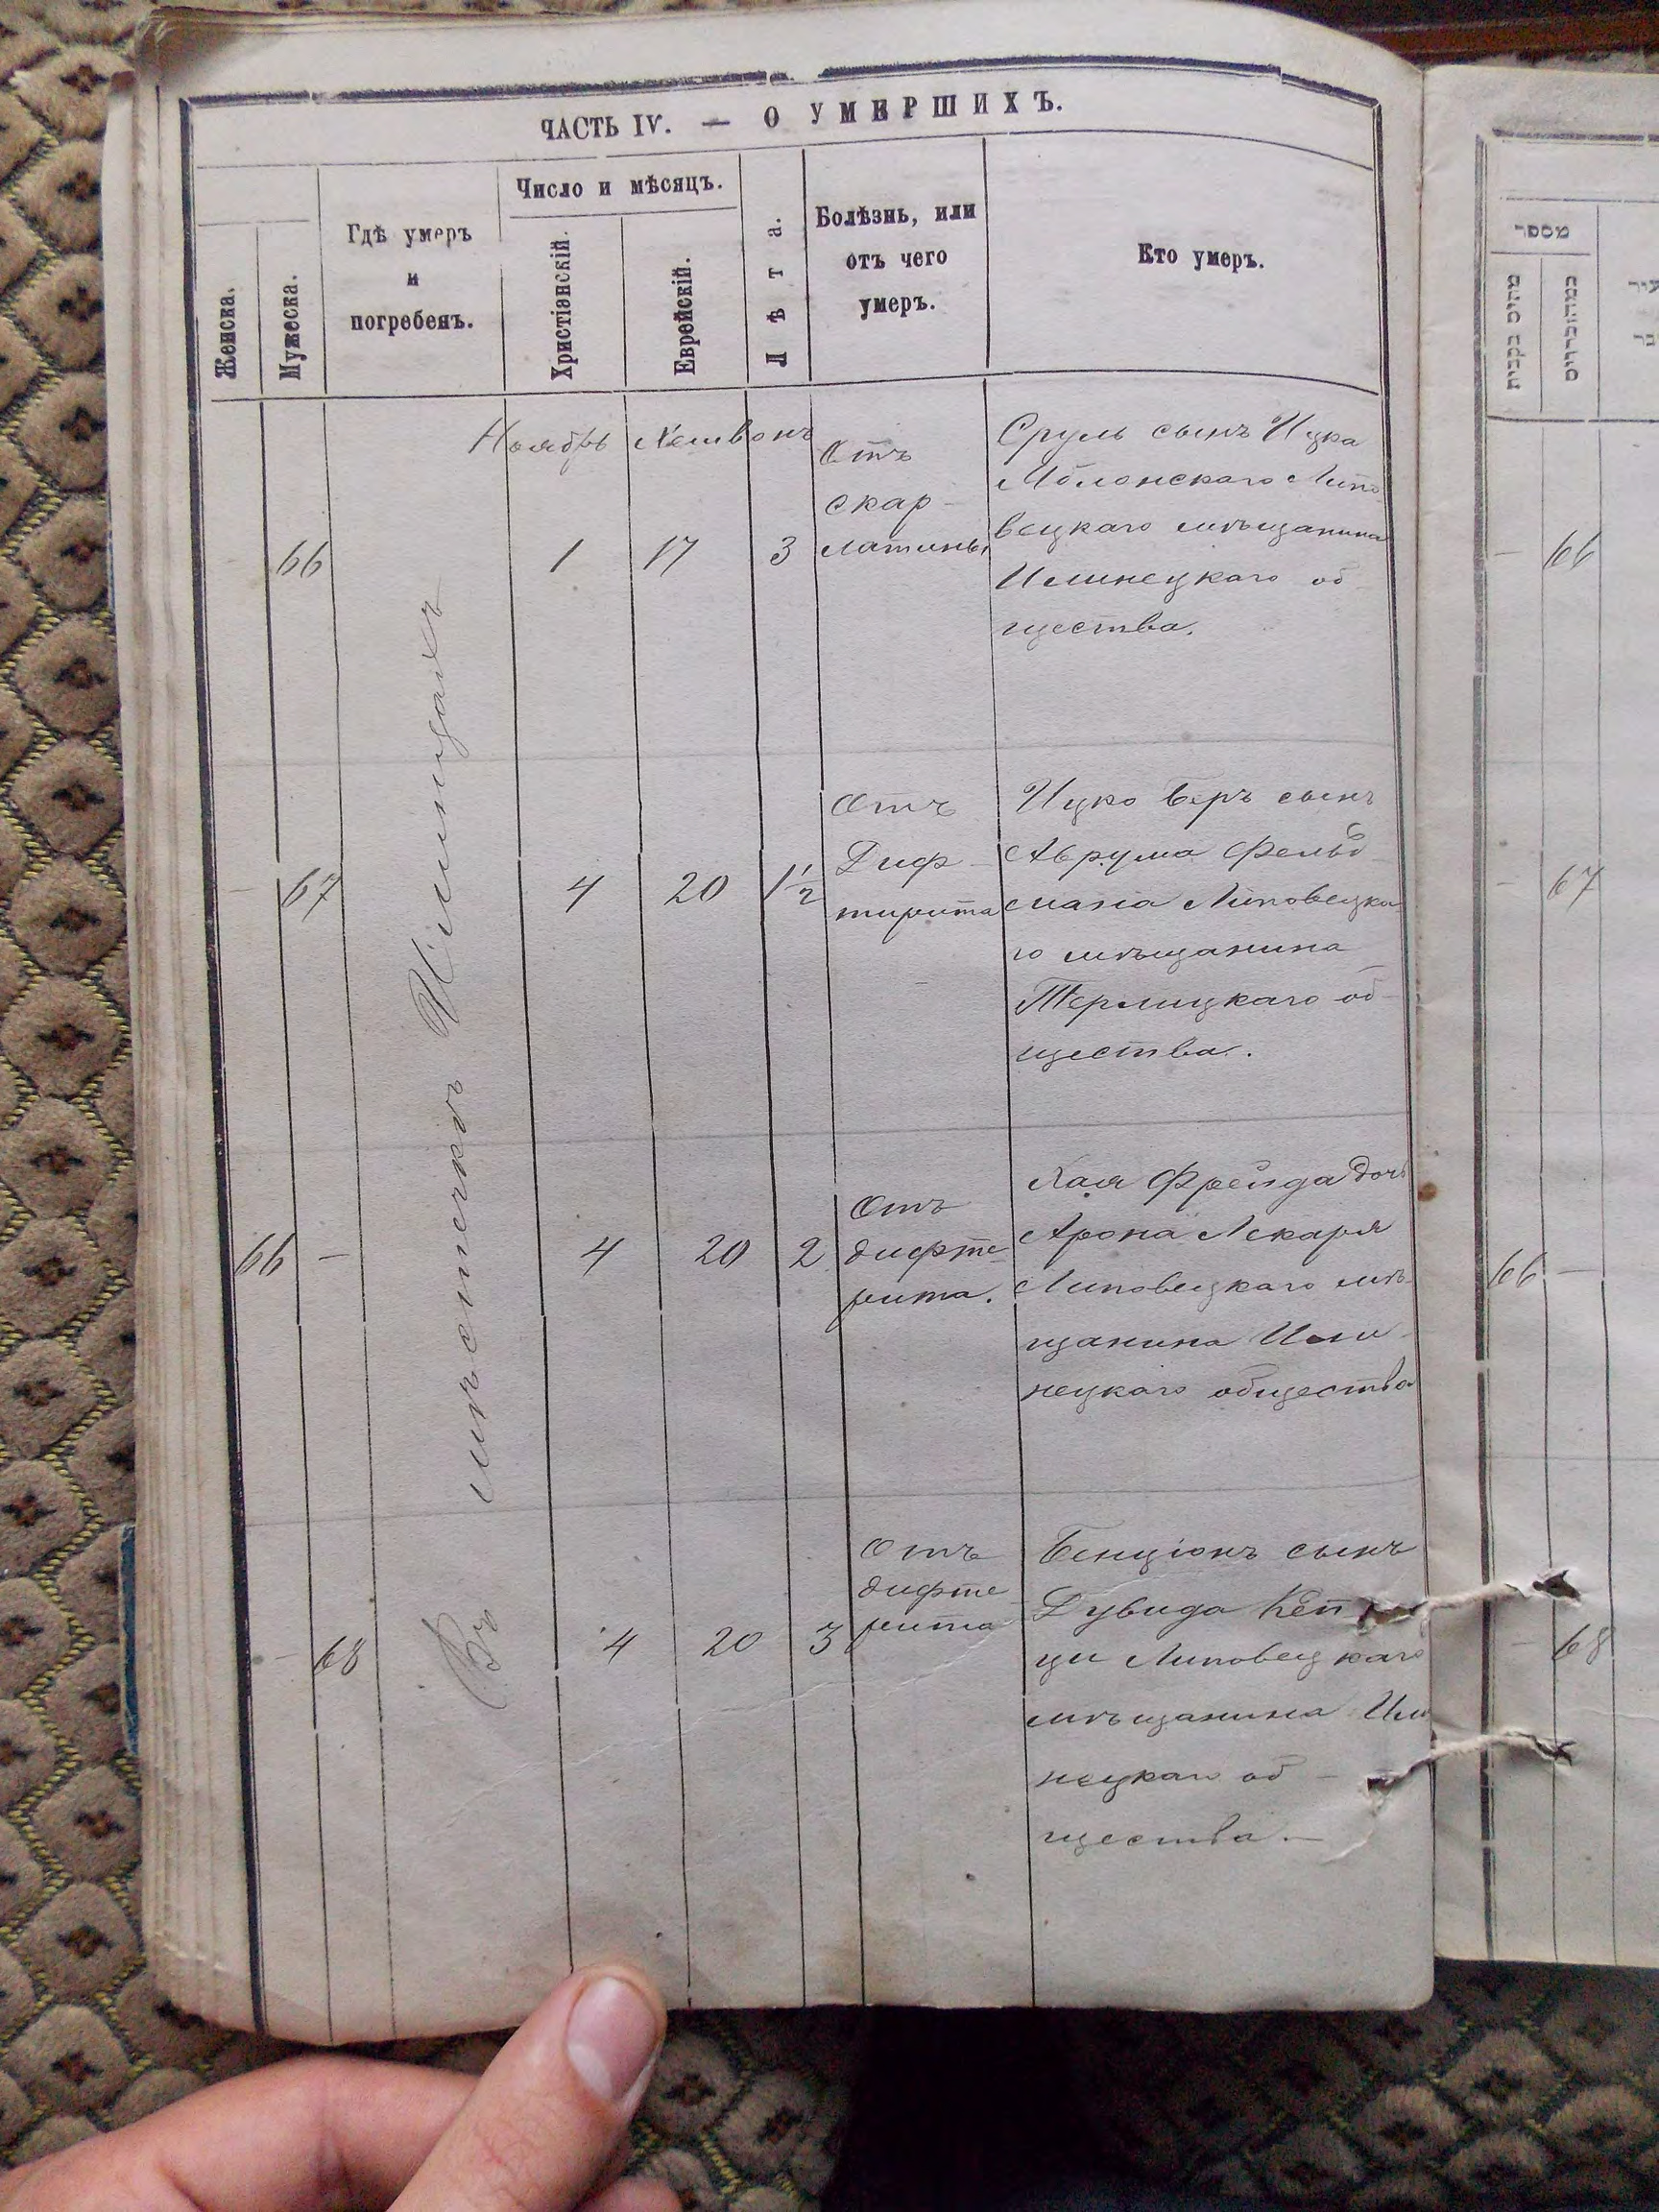 ЧАСТЬ IV. — О УМЕРШИХЪ.
Женска.
Мужеска.
Гдѣ умеръ
и
погребенъ.
Число и мѣсяцъ.
Христіанскій.
Еврейскій.
Лѣта.
Болѣзнь, или
отъ чего
умеръ.
Кто умеръ.
Въ мѣстечкѣ Илинцахъ
Ноябрь Хешвонъ
66 1 17 3
Отъ
скар-
латины
Сруль сынъ Ицка
Яблонскаго Липо
вецкаго мѣщанина
Илинецкаго об
щества.
— 67 4 20 1½
Отъ
Диф-
тирита
Ицко Беръ сынъ
Аврума Фельд
мана Липовецка-
го мѣщанина
Терлицкаго об-
щества.
66 — 4 20 2
Отъ
дифте-
рита.
Хая Фрейда дочь
Арона Лекаря
Липовецкаго мѣ-
щанина Или-
нецкаго общества
— 68 4 20 3
Отъ
дифте-
рита
Бенціонъ сынъ
Дувида
ци Липовецкаго
мѣщанина Или
нецкаго об —
щества. —
מספר
מהנקבות
מהזכרים
— 66
— 67
66 —
— 68